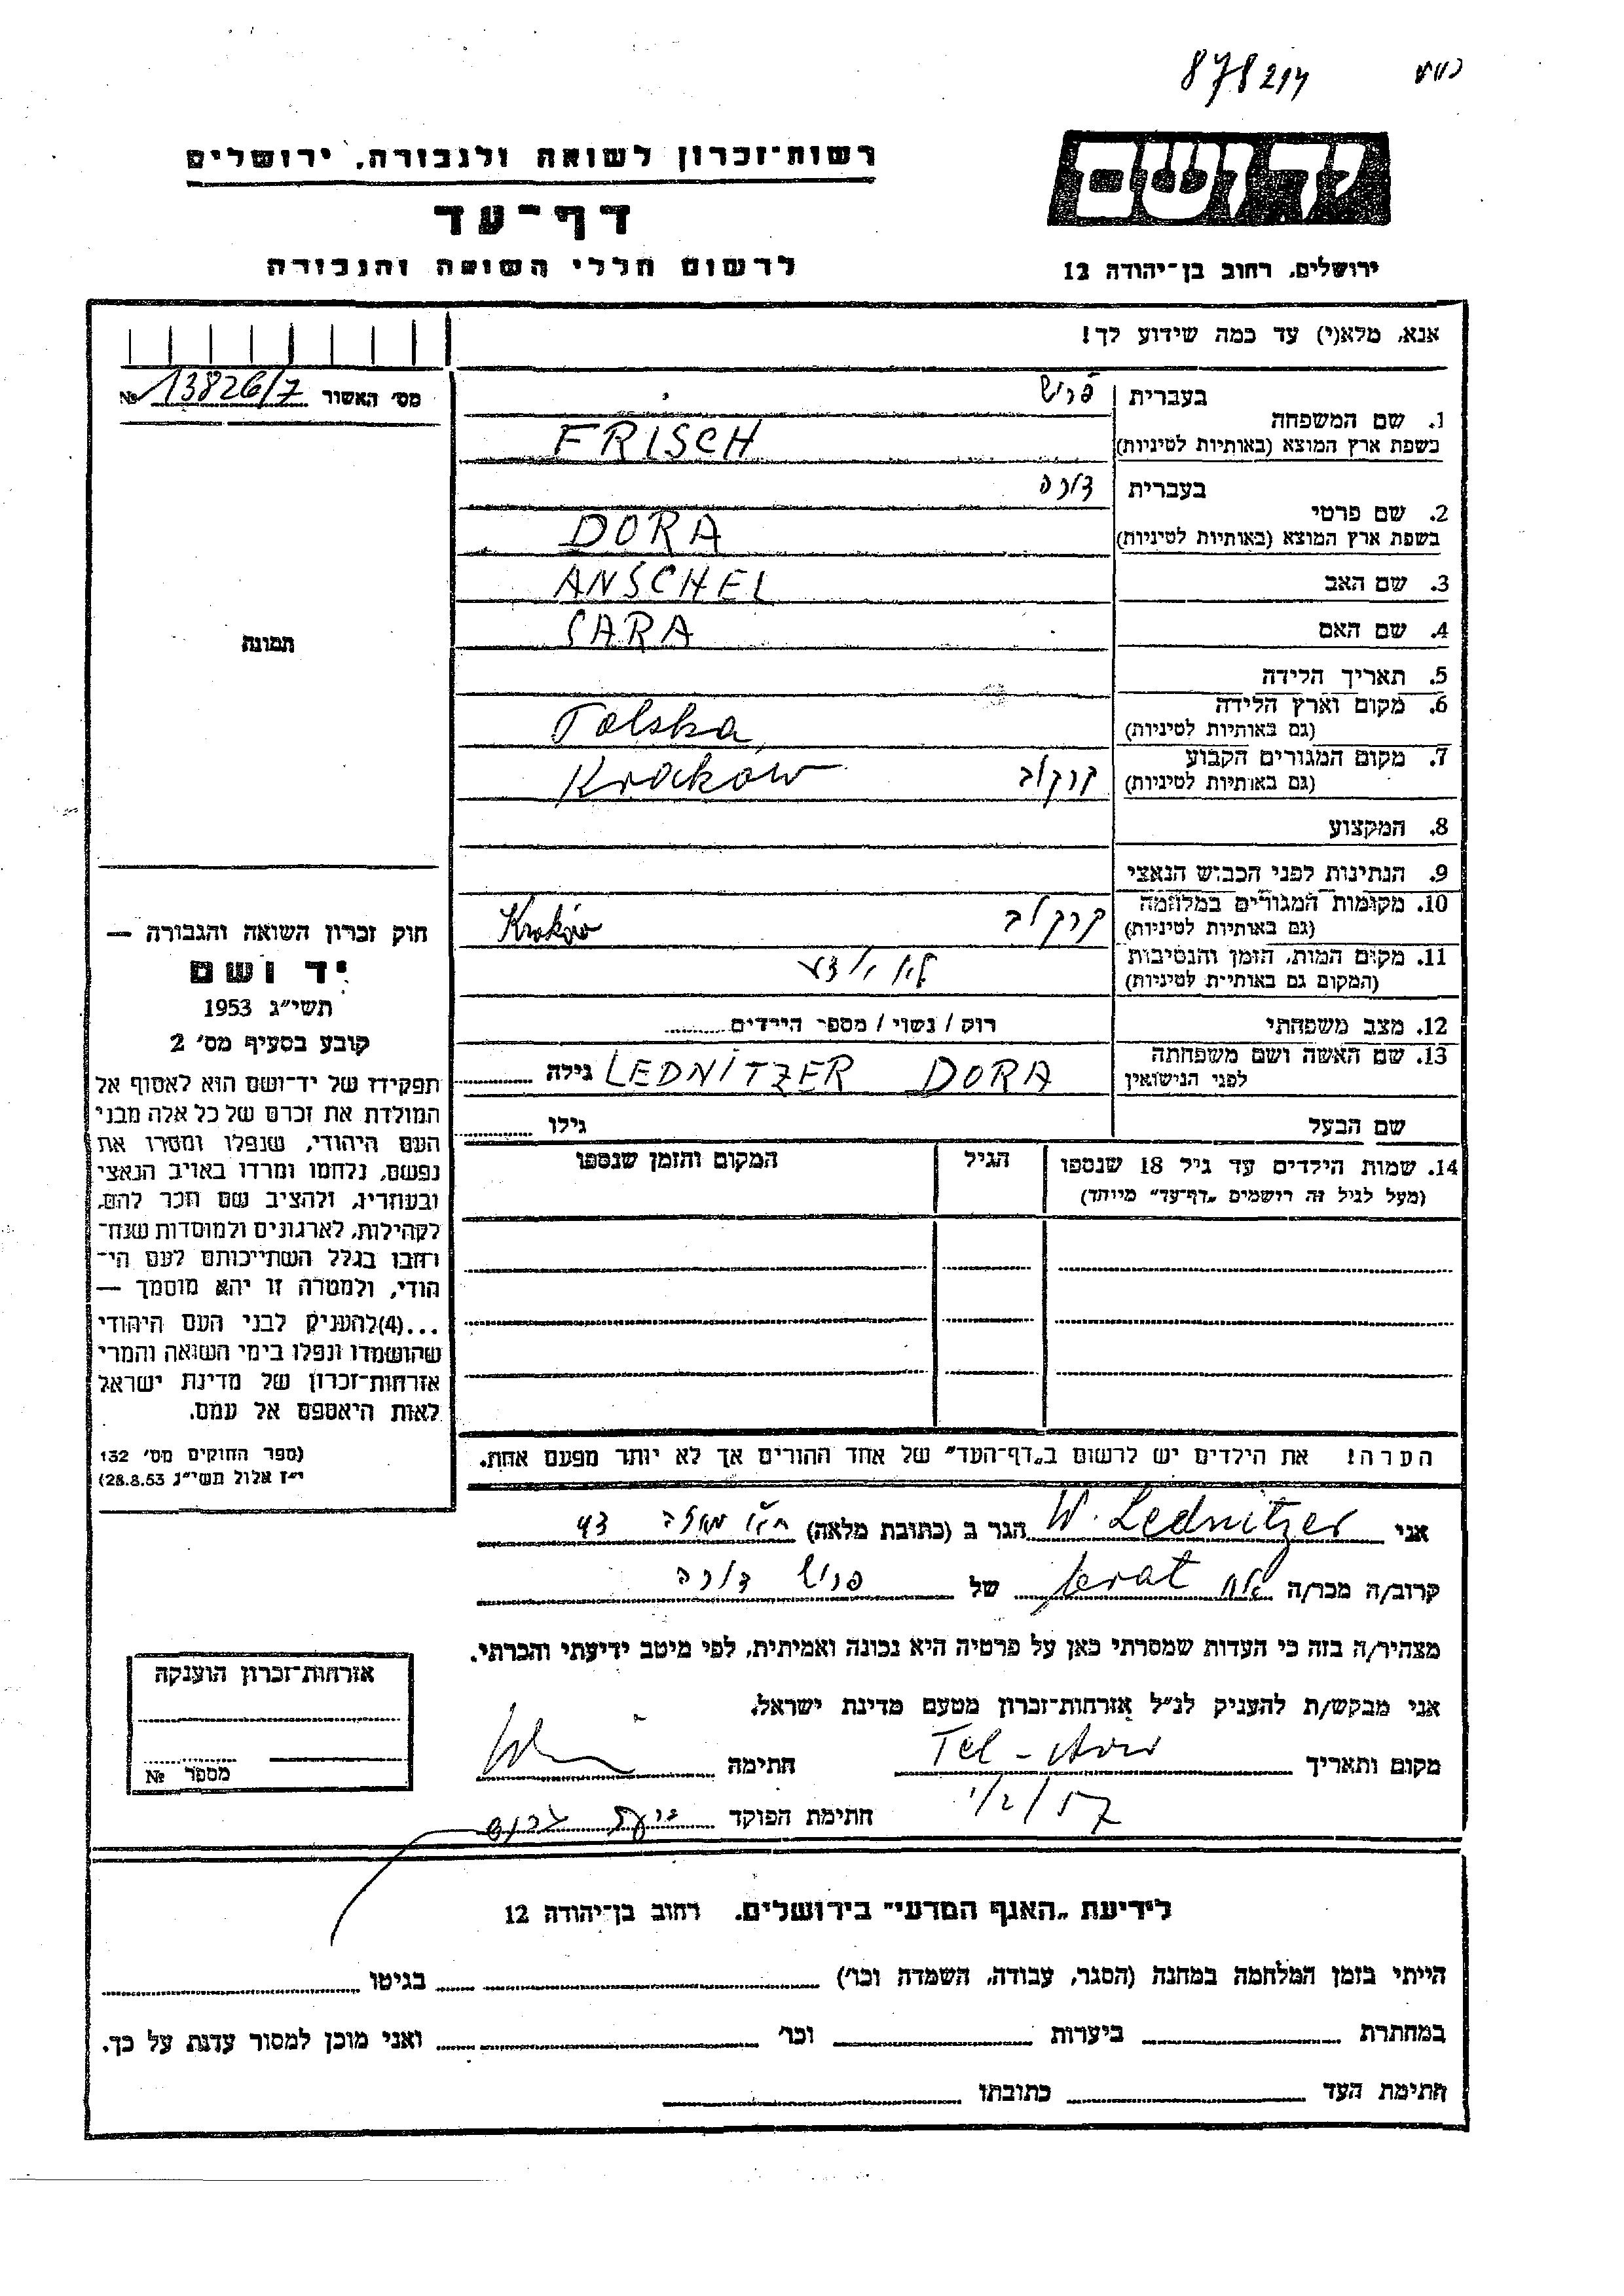 878214
יד ושם
רשות־זכרון לשואה ולגבורה, ירושלים
דף־עד
לרשום חללי השואה והגבורה
ירושלים, רחוב בן־יהודה 12
אנא, מלא(י) עד כמה שידוע לך!
מס׳ האשור 13826/7 №
בעברית פריש
1. שם המשפחה
בשפת ארץ המוצא (באותיות לטיניות) FRISCH
בעברית דורה
2. שם פרטי
בשפת ארץ המוצא (באותיות לטיניות) DORA
3. שם האב ANSCHEL
4. שם האם SARA
תמונה
5. תאריך הלידה
6. מקום וארץ הלידה
(גם באותיות לטיניות) Polska
7. מקום המגורים הקבוע
(גם באותיות לטיניות) קרקוב Krakow
8. המקצוע
9. הנתינות לפני הכבוש הנאצי
10. מקומות המגורים במלחמה
(גם באותיות לטיניות) קרקוב Kraków
11. מקום המות, הזמן והנסיבות
(המקום גם באותיות לטיניות) לא ידוע
12. מצב משפחתי רווק / נשוי / מספר הילדים
13. שם האשה ושם משפחתה
לפני הנישואין DORA LEDNITZER גילה
שם הבעל גילו
14. שמות הילדים עד גיל 18 שנספו הגיל המקום והזמן שנספו
(מעל לגיל זה רושמים „דף־עד״ מיוחד)
חוק זכרון השואה והגבורה —
יד ושם
תשי״ג 1953
קובע בסעיף מס׳ 2
תפקידו של יד־ושם הוא לאסוף אל
המולדת את זכרם של כל אלה מבני
העם היהודי, שנפלו ומסרו את
נפשם, נלחמו ומרדו באויב הנאצי
ובעוזריו, ולהציב שם וזכר להם,
לקהילות, לארגונים ולמוסדות שנח־
רובו בגלל השתייכותם לעם הי־
הודי, ולמטרה זו יהא מוסמך —
...(4)להעניק לבני העם היהודי
שהושמדו ונפלו בימי השואה והמרי
אזרחות־זכרון של מדינת ישראל
לאות היאספם אל עמם.
(ספר החוקים מס׳ 132
י״ז אלול תשי״ג 28.8.53)
הערה! את הילדים יש לרשום ב„דף־העד״ של אחד ההורים אך לא יותר מפעם אחת.
אני W. Lednitzer הגר ב (כתובת מלאה) 43
קרוב/ה מכר/ה אח של פריש דורה
מצהיר/ה בזה כי העדות שמסרתי כאן על פרטיה היא נכונה ואמיתית, לפי מיטב ידיעתי והכרתי.
אני מבקש/ת להעניק לנ״ל אזרחות־זכרון מטעם מדינת ישראל.
מקום ותאריך Tel-Aviv חתימה
1/2/57
חתימת הפוקד
אזרחות־זכרון הוענקה
מספר №
לידיעת „האגף המדעי״ בירושלים. רחוב בן־יהודה 12
הייתי בזמן המלחמה במחנה (הסגר, עבודה, השמדה וכו׳) בגיטו
במחתרת ביערות וכו׳ ואני מוכן למסור עדות על כך.
חתימת העד כתובתו